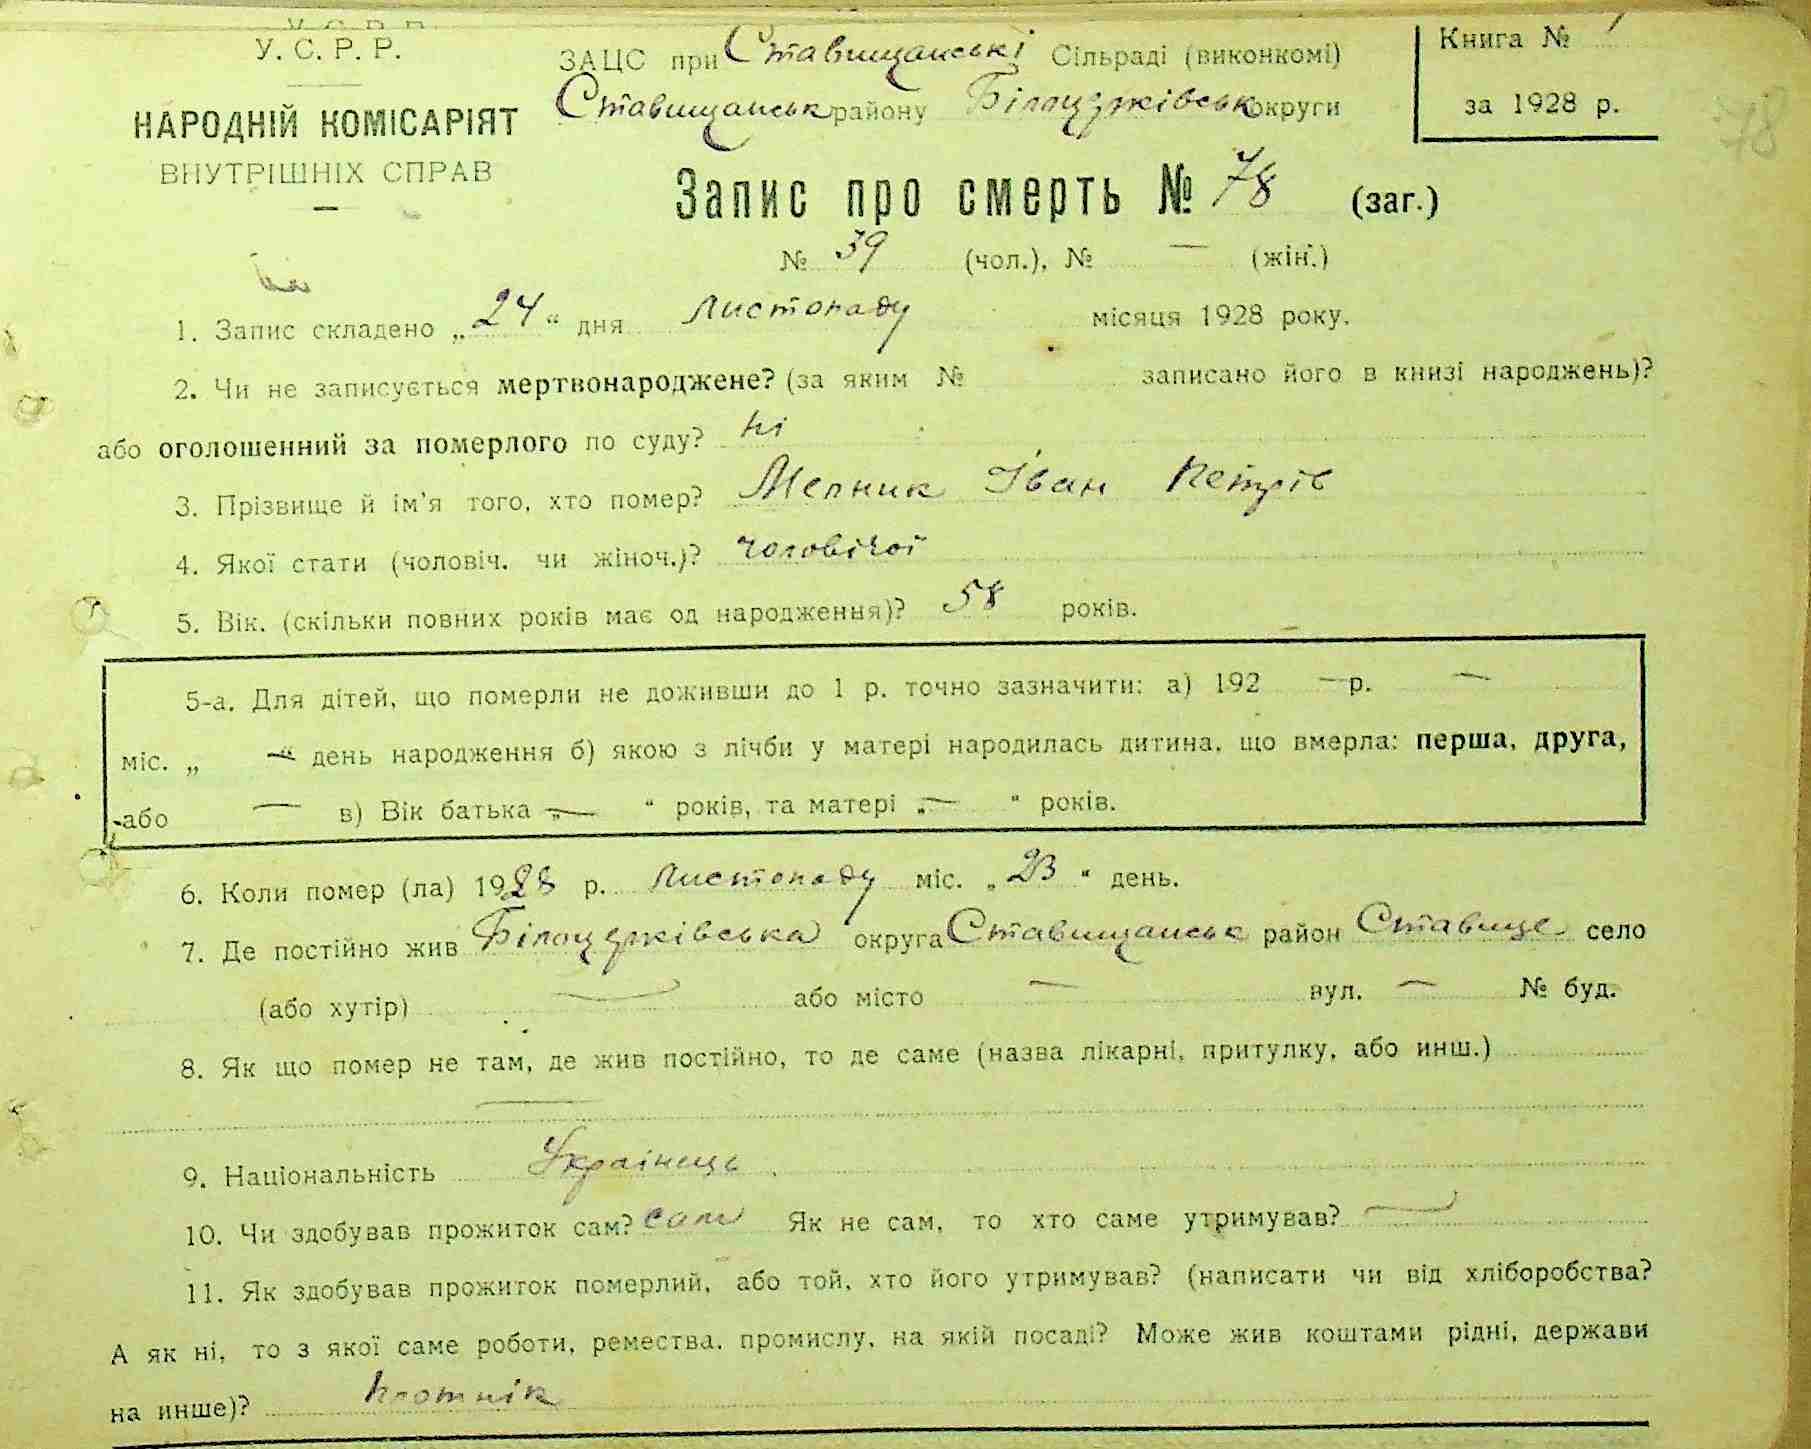 У. С. Р. Р.
НАРОДНІЙ КОМІСАРІЯТ
ВНУТРІШНІХ СПРАВ
ЗАЦС при Ставищанські Сільраді (виконкомі)
Ставищанськ району Білоцерківськ округи
Книга № 1
за 1928 р.
78
Запис про смерть № 78 (заг.)
№ 39 (чол.), № — (жін.)
1. Запис складено „24“ дня листопаду місяця 1928 року.
2. Чи не записується мертвонароджене? (за яким № записано його в книзі народжень)?
або оголошенний за померлого по суду? ні
3. Прізвище й ім'я того, хто помер? Мелник Іван Петрів
4. Якої стати (чоловіч. чи жіноч.)? чоловічої
5. Вік. (скільки повних років має од народження)? 58 років.
5-а. Для дітей, що померли не доживши до 1 р. точно зазначити: а) 192 — р. —
міс. „ —“ день народження б) якою з лічби у матері народилась дитина, що вмерла: перша, друга,
або — в) Вік батька „—“ років, та матері „—“ років.
6. Коли помер (ла) 1928 р. листопаду міс. „23“ день.
7. Де постійно жив Білоцерківська округа Ставищанськ район Ставище село
(або хутір) — або місто — вул. — № буд.
8. Як що помер не там, де жив постійно, то де саме (назва лікарні, притулку, або инш.)
—
9. Національність Українець
10. Чи здобував прожиток сам? сам Як не сам, то хто саме утримував? —
11. Як здобував прожиток померлий, або той, хто його утримував? (написати чи від хліборобства?
А як ні, то з якої саме роботи, ремества, промислу, на якій посаді? Може жив коштами рідні, держави
на инше)? плотнік